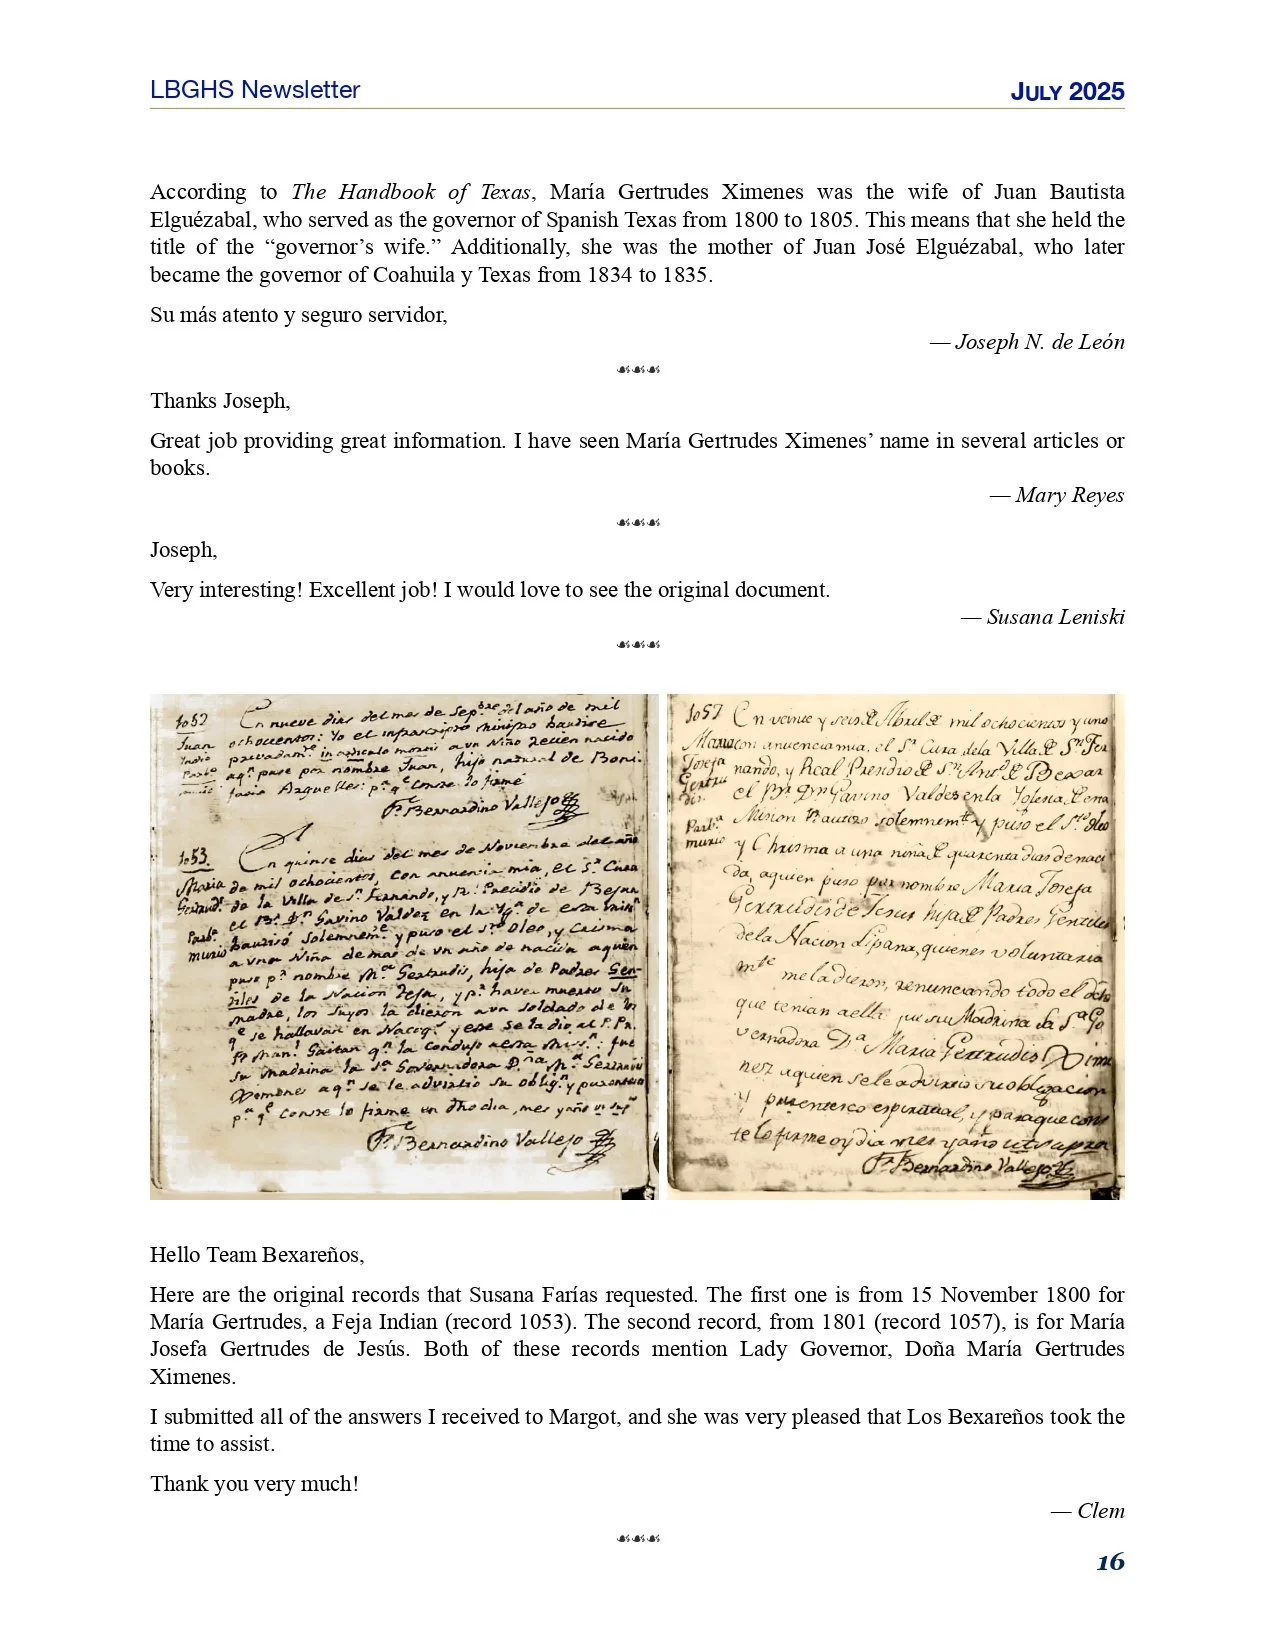 LBGHS Newsletter
JULY 2025
According to The Handbook of Texas, María Gertrudes Ximenes was the wife of Juan Bautista
Elguézabal, who served as the governor of Spanish Texas from 1800 to 1805. This means that she held the
title of the “governor’s wife.” Additionally, she was the mother of Juan José Elguézabal, who later
became the governor of Coahuila y Texas from 1834 to 1835.
Su más atento y seguro servidor,
— Joseph N. de León
Thanks Joseph,
Great job providing great information. I have seen María Gertrudes Ximenes’ name in several articles or
books.
— Mary Reyes
Joseph,
Very interesting! Excellent job! I would love to see the original document.
— Susana Leniski
1052
Juan
Indio
En nueve dias del mes de Sepbre del año de mil
ochocientos: Yo el infrascripto ministro bautise
in articulo mortis a un Niño recien nacido
aqn puse por nombre Juan, hijo natural de Boni-
facia Arguelles: pa qe conste lo firmé
Fr. Bernardino Vallejo
1053.
Maria
Gertruds
En quinse dias del mes de Noviembre del año
de mil ochocientos, con anuencia mia, el Sr Cura
de la Villa de Sn Fernando, y Rl Precidio de Bejar
el Br Dn Gavino Valdez en la Yga de esta Misn
bautisó solemneme y puso el Sto Oleo, y Crisma
a una Niña de mas de un año de nacida aquien
puso pr nombre Ma Gertrudis, hija de Padres Gen-
tiles de la Nacion Teja, y pr haver muerto su
madre, los suyos la dieron a un soldado de los
qe se hallavan en Nacogs y ese se la dio al P. Pr.
Fr Manl Gaitan qn la condujo aesta Misn: fue
su Madrina la Sa Governadora Dña Ma Gertrudis
Ximenes aqn se le advirtio su obligon y parentesco
pa qe conste lo firme en dho dia, mes y año
Fr. Bernardino Vallejo
1057
Maria
Josefa
Gertru
dis.
En veinte y seis de Abril de mil ochocientos y uno
con anuencia mia, el Sr Cura dela Villa de Sn Fer
nando, y Real Precidio de Sn Anto de Bexar
el Br. Dn Gavino Valdes en la Yglesia de esta
Mision Bautizo solemnemte y puso el Sto Oleo
y Chrisma a una niña de quarenta dias de naci
da, aquien puso por nombre Maria Josefa
Gertrudis de Jesus hija de Padres Gentiles
dela Nacion Lipana, quienes voluntaria
mte me la dieron, renunciando todo el dcho
que tenian aella fue su Madrina la Sa Go
vernadora Da Maria Gertrudis Xime
nez aquien se le advirtio su obligacion
y parentesco espiritual, y para que cons
te lo firme oy dia mes y año ut supra
Fr. Bernardino Vallejo
Hello Team Bexareños,
Here are the original records that Susana Farías requested. The first one is from 15 November 1800 for
María Gertrudes, a Feja Indian (record 1053). The second record, from 1801 (record 1057), is for María
Josefa Gertrudes de Jesús. Both of these records mention Lady Governor, Doña María Gertrudes
Ximenes.
I submitted all of the answers I received to Margot, and she was very pleased that Los Bexareños took the
time to assist.
Thank you very much!
— Clem
16